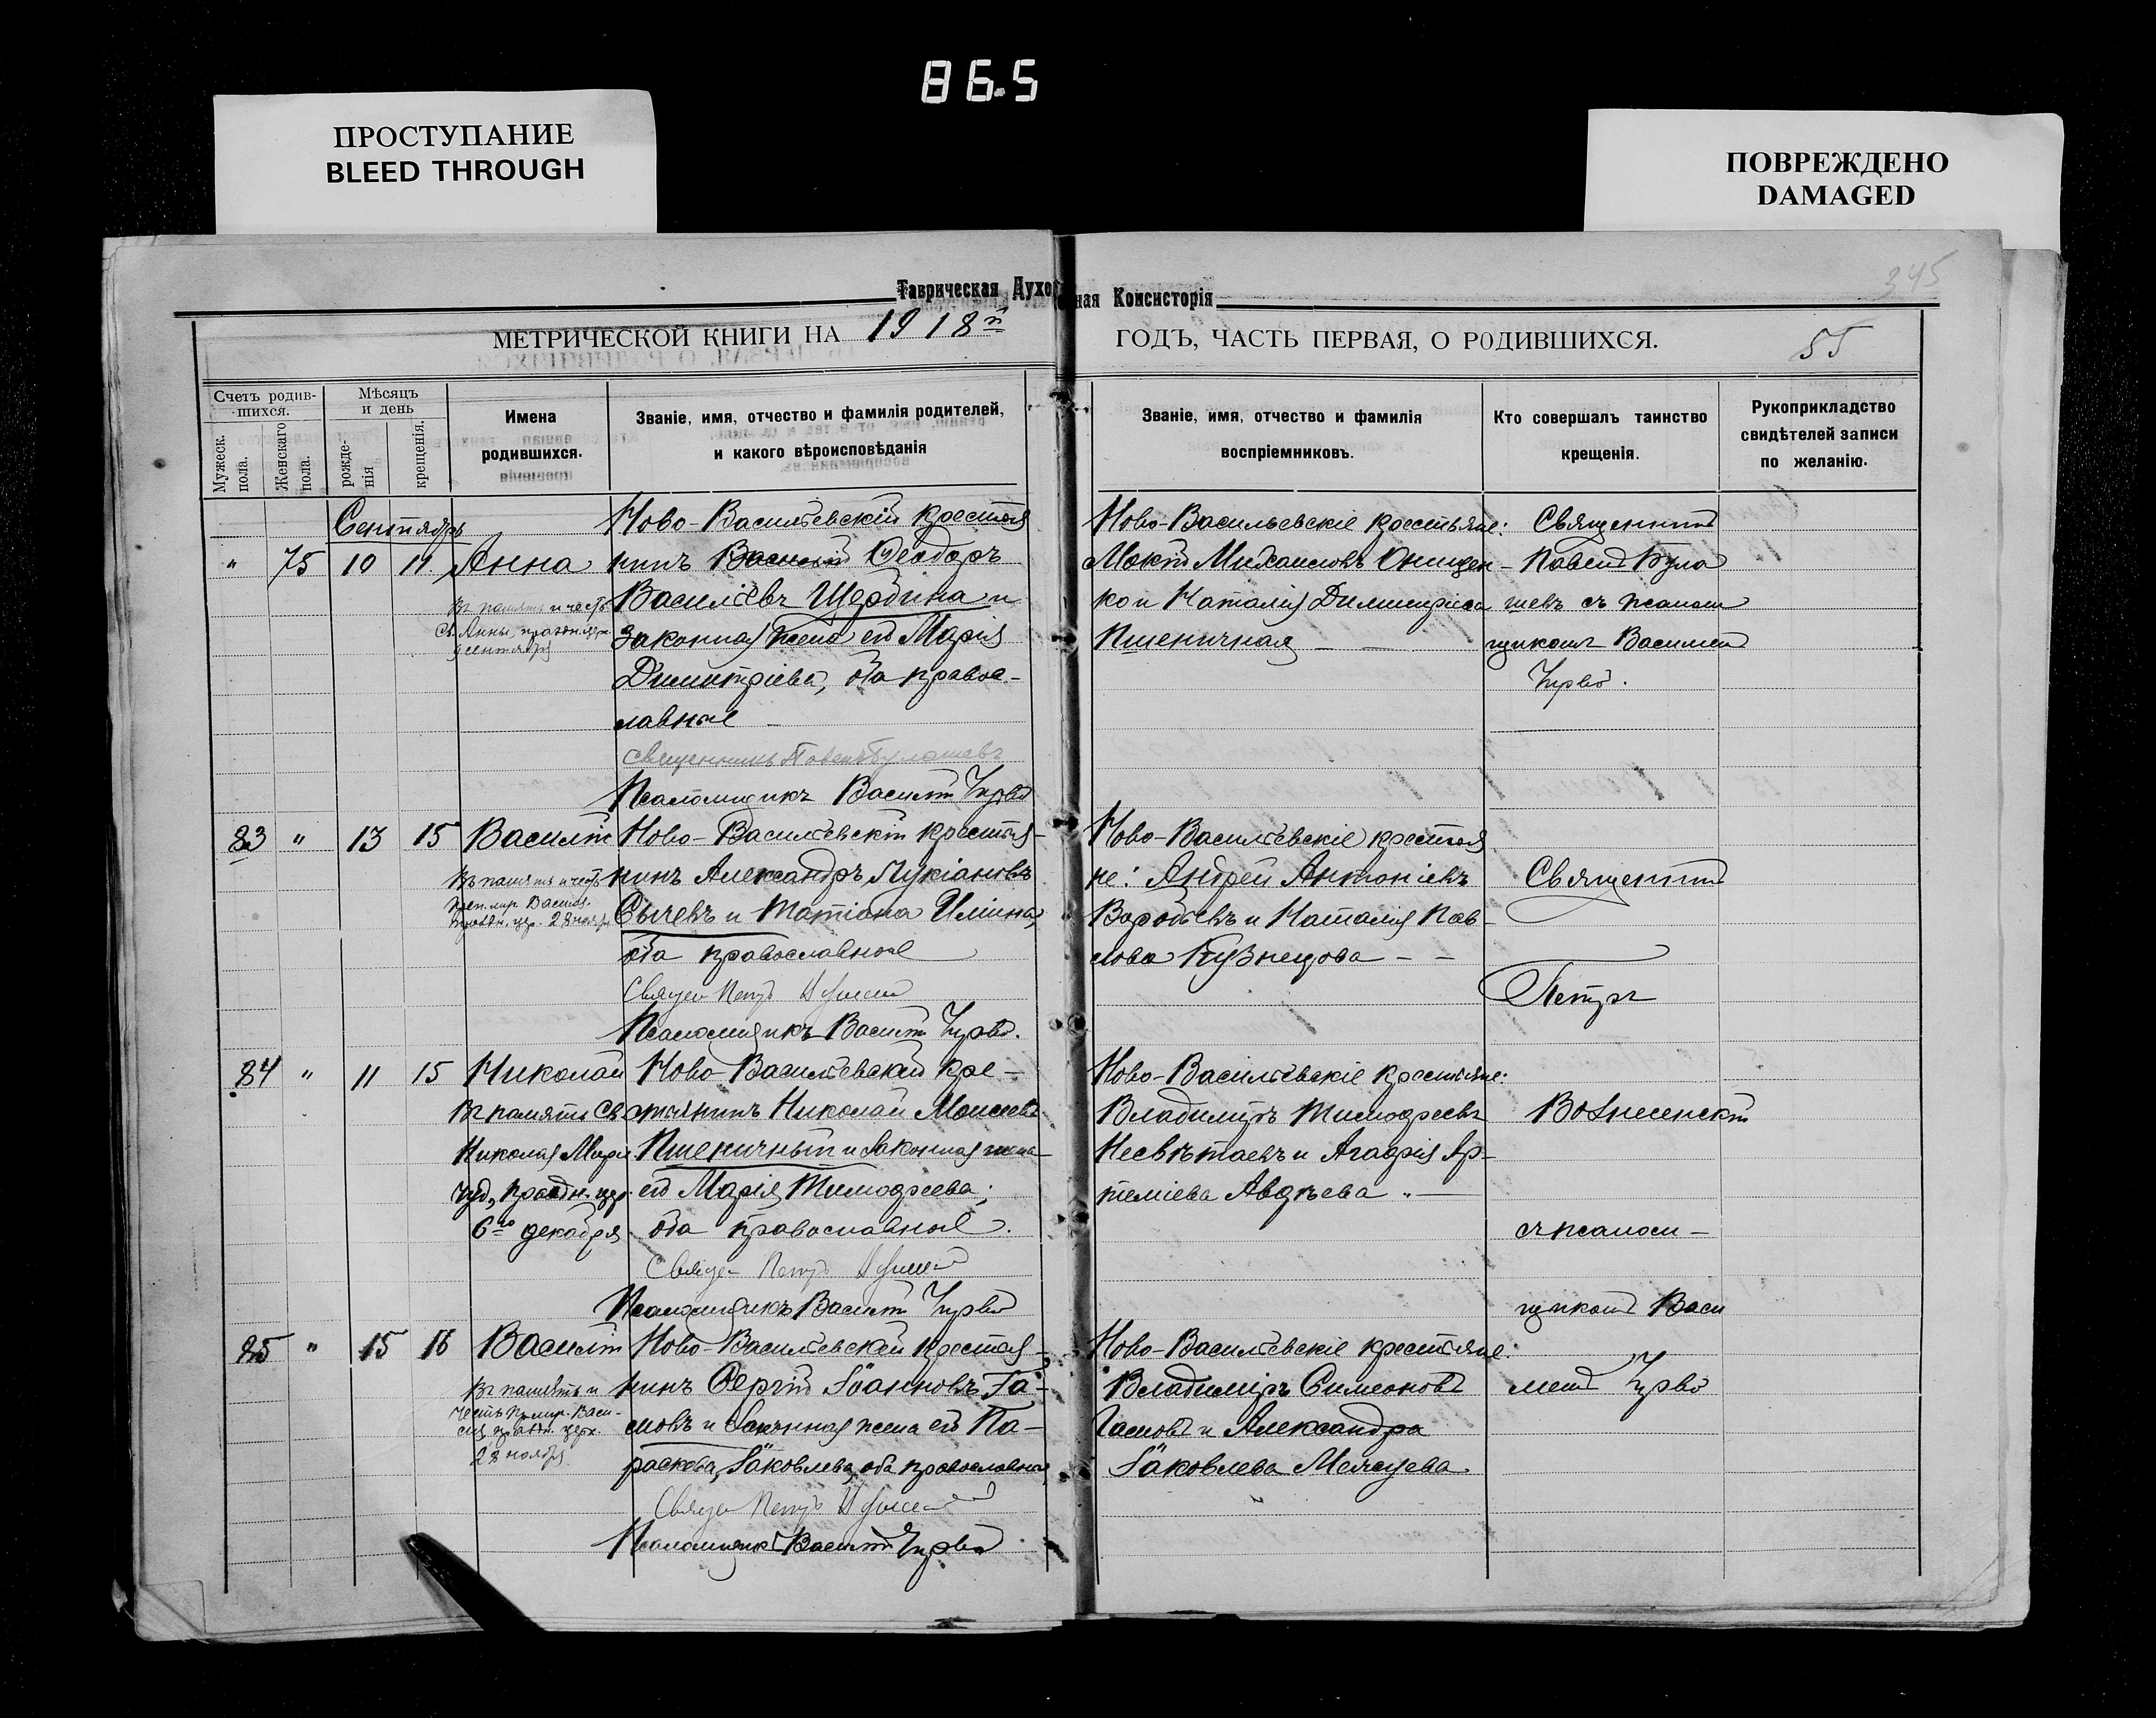 86.5
ПРОСТУПАНИЕ
BLEED THROUGH
ПОВРЕЖДЕНО
DAMAGED
345
Таврическая Духовная Консисторія
МЕТРИЧЕСКОЙ КНИГИ НА 1918й ГОДЪ, ЧАСТЬ ПЕРВАЯ, О РОДИВШИХСЯ.
55
Счетъ родив-
шихся.
Мужеск.
пола.
Женскаго
пола.
Мѣсяцъ
и день
рожде-
нія
крещенія.
Имена
родившихся.
Званіе, имя, отчество и фамилія родителей,
и какого вѣроисповѣданія
Званіе, имя, отчество и фамилія
воспріемниковъ.
Кто совершалъ таинство
крещенія.
Рукоприкладство
свидѣтелей записи
по желанію.
Сентябрь
" 75 10 11 Анна
Въ память и честь
Св. Анны, праздн. церк.
9 сентября
Ново-Васильевскій крестья
нинъ Василій Ѳеодоръ
Васильевъ Щербина и
законная жена его Марія
Димитріева, оба правос-
лавные
священникъ Павелъ Булашевъ
Псаломщикъ Василій
Ново-Васильевскіе крестьяне:
Мокій Михаиловъ Онищен-
ко и Наталія Димитріева
Пшеничная
Священникъ
Павелъ Була
шевъ съ псалом
щикомъ Василіемъ
83 " 13 15 Василій
Въ память и честь
28 ноября
Ново-Васильевскій крестья-
нинъ Александръ Лукіановъ
Сычевъ и Татіана Иліина,
оба православные
Священ Петръ
Псаломщикъ Василій
Ново-Васильевскіе крестья
не: Андрей Антоніевъ
Воробьевъ и Наталія Пав-
лова Кузнецова
Священникъ
Петръ
84 " 11 15 Николай
Въ память Св.
Николая Мири
чуд., праздн. цер.
6го декабря
Ново-Васильевскій кре-
стьянинъ Николай Моисеевъ
Пшеничный и законная жена
его Марія Тимофеева;
оба православные.
Священ Петръ
Псаломщикъ Василій
Ново-Васильевскіе крестьяне:
Владиміръ Тимофеевъ
Несвѣтаевъ и Агафія Ар-
теміева Авдѣева
Вознесенскій
съ псалом-
щикомъ Васи
85 " 15 16 Василій
Въ память и
честь
28 ноября
Ново-Васильевскій крестья-
нинъ Сергій Іоанновъ Га-
мовъ и законная жена его Па-
раскева Іаковлева, оба православные
Священ Петръ
Псаломщикъ Василій
Ново-Васильевскіе крестьяне:
Владиміръ Симеоновъ
Гамовъ и Александра
Іаковлева
ліемъ